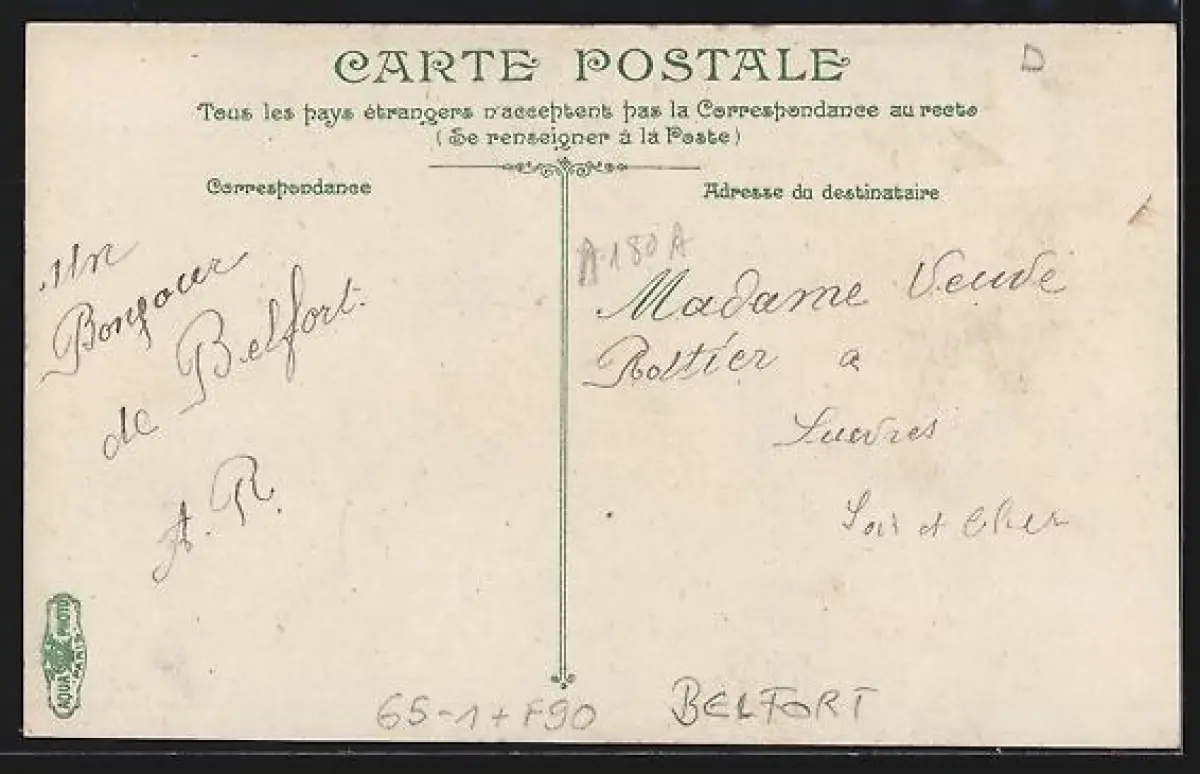 CARTE POSTALE
D
Tous les pays étrangers n'acceptent pas la Correspondance au recto
(Se renseigner à la Poste)
Correspondance
Adresse du destinataire
Un
Bonjour
de Belfort.
A. R.
A180A
Madame Veuve
Rottier a
Suevres
Loir et Cher
AQUA PHOTO
PARIS
65-1+F90
BELFORT